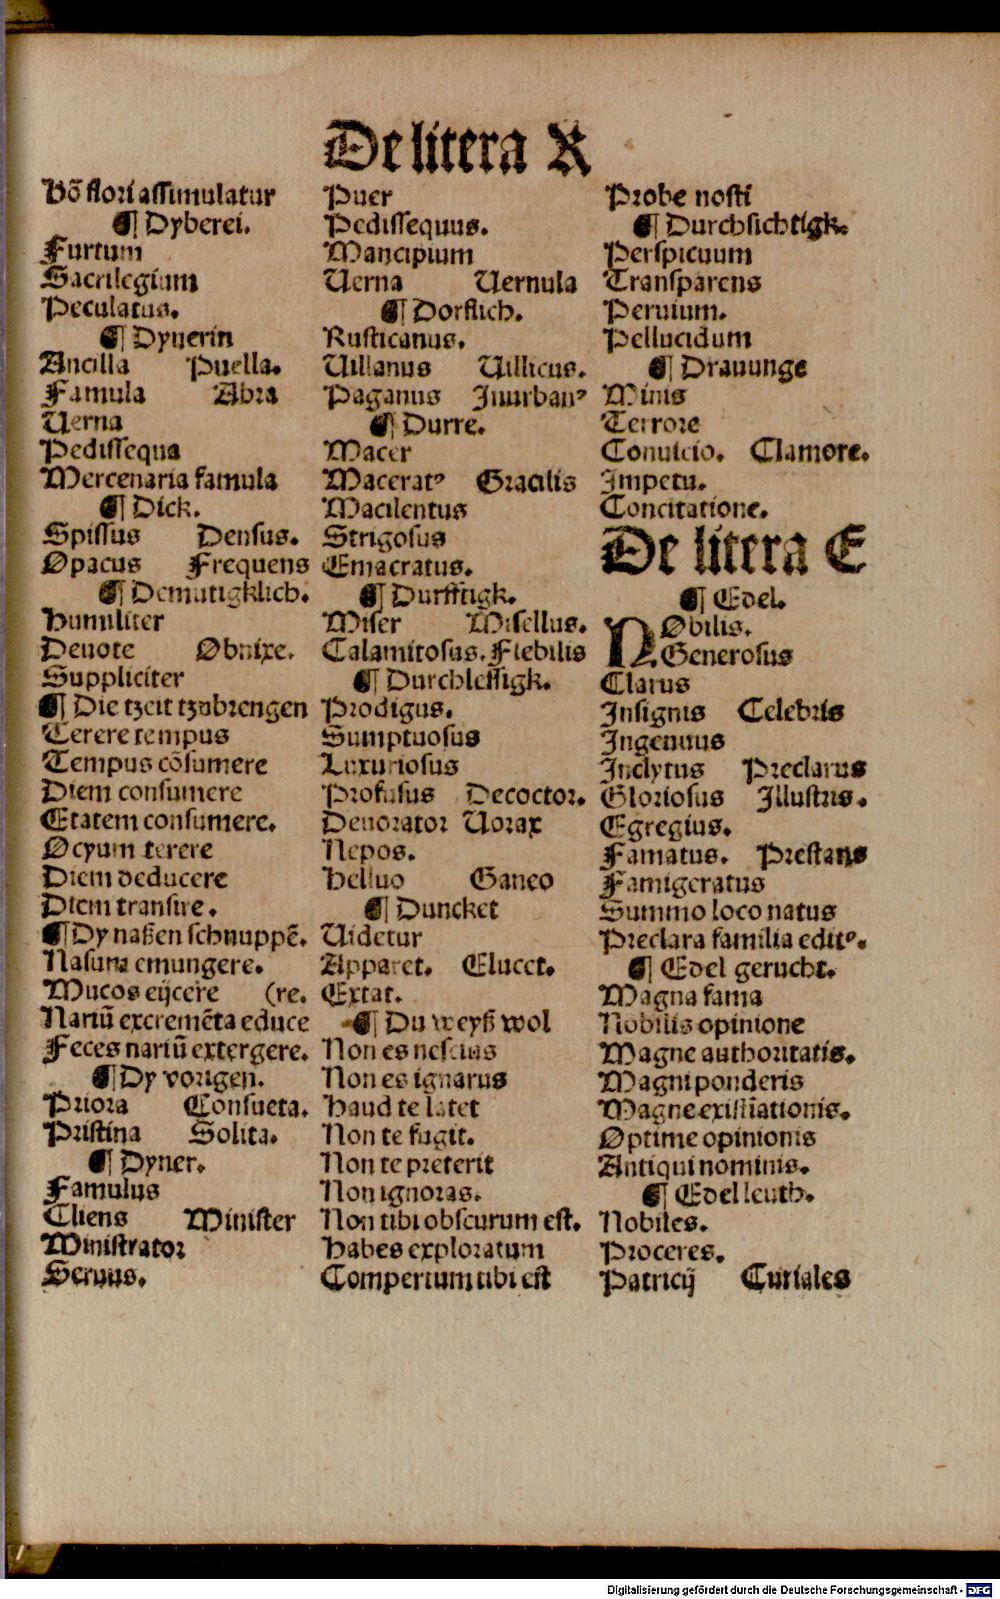 De litera X
Bõ flori assimulatur
¶ Dyberei.
Furtum
Sacrilegium
Peculatus.
¶ Dynerin
Ancilla Puella.
Famula Abra
Uerna
Pedissequa
Mercenaria famula
¶ Dick.
Spissus Densus.
Opacus Frequens
¶ Demutigklich.
Humiliter
Deuote Obnixe.
Suppliciter
¶ Die tzeit tzubrengen
Terere tempus
Tempus cõsumere
Diem consumere
Etatem consumere.
Ocyum terere
Diem deducere
Diem transire.
¶ Dy naßen schnuppẽ.
Nasum emungere.
Mucos eijcere (re.
Nariũ excremẽta educe
Feces nariũ extergere.
¶ Dy vorigen.
Priora Consueta.
Pristina Solita.
¶ Dyner.
Famulus
Cliens Minister
Ministrator
Seruus.
Puer
Pedissequus.
Mancipium
Uerna Uernula
¶ Dorflich.
Rusticanus.
Uillanus Uillicus.
Paganus Inurbanꝰ
¶ Durre.
Macer
Maceratꝰ Gracilis
Macilentus
Strigosus
Emacratus.
¶ Durfftigk.
Miser Misellus.
Calamitosus. Flebilis
¶ Durchlessigk.
Prodigus.
Sumptuosus
Luxuriosus
Profusus Decoctor.
Deuorator Uorax
Nepos.
Helluo Ganeo
¶ Duncket
Uidetur
Apparet. Elucet.
Extat.
¶ Du weyß wol
Non es nescius
Non es ignarus
Haud te latet
Non te fugit.
Non te preterit
Non ignoras.
Non tibi obscurum est.
Habes exploratum
Compertum tibi est
Probe nosti
¶ Durchsichtigk.
Perspicuum
Transparens
Peruium.
Pellucidum
¶ Drauunge
Minis
Terrore
Conuicio. Clamore.
Impetu.
Concitatione.
De litera E
¶ Edel.
NObilis.
Generosus
Clarus
Insignis Celebris
Ingenuus
Inclytus Preclarus
Gloriosus Illustris.
Egregius.
Famatus. Prestans
Famigeratus
Summo loco natus
Preclara familia editꝰ.
¶ Edel gerucht.
Magna fama
Nobilis opinione
Magne authoritatis.
Magni ponderis
Magne existĩationis.
Optime opinionis
Antiqui nominis.
¶ Edelleuth.
Nobiles.
Proceres.
Patricij Curiales
Digitalisierung gefördert durch die Deutsche Forschungsgemeinschaft - DFG